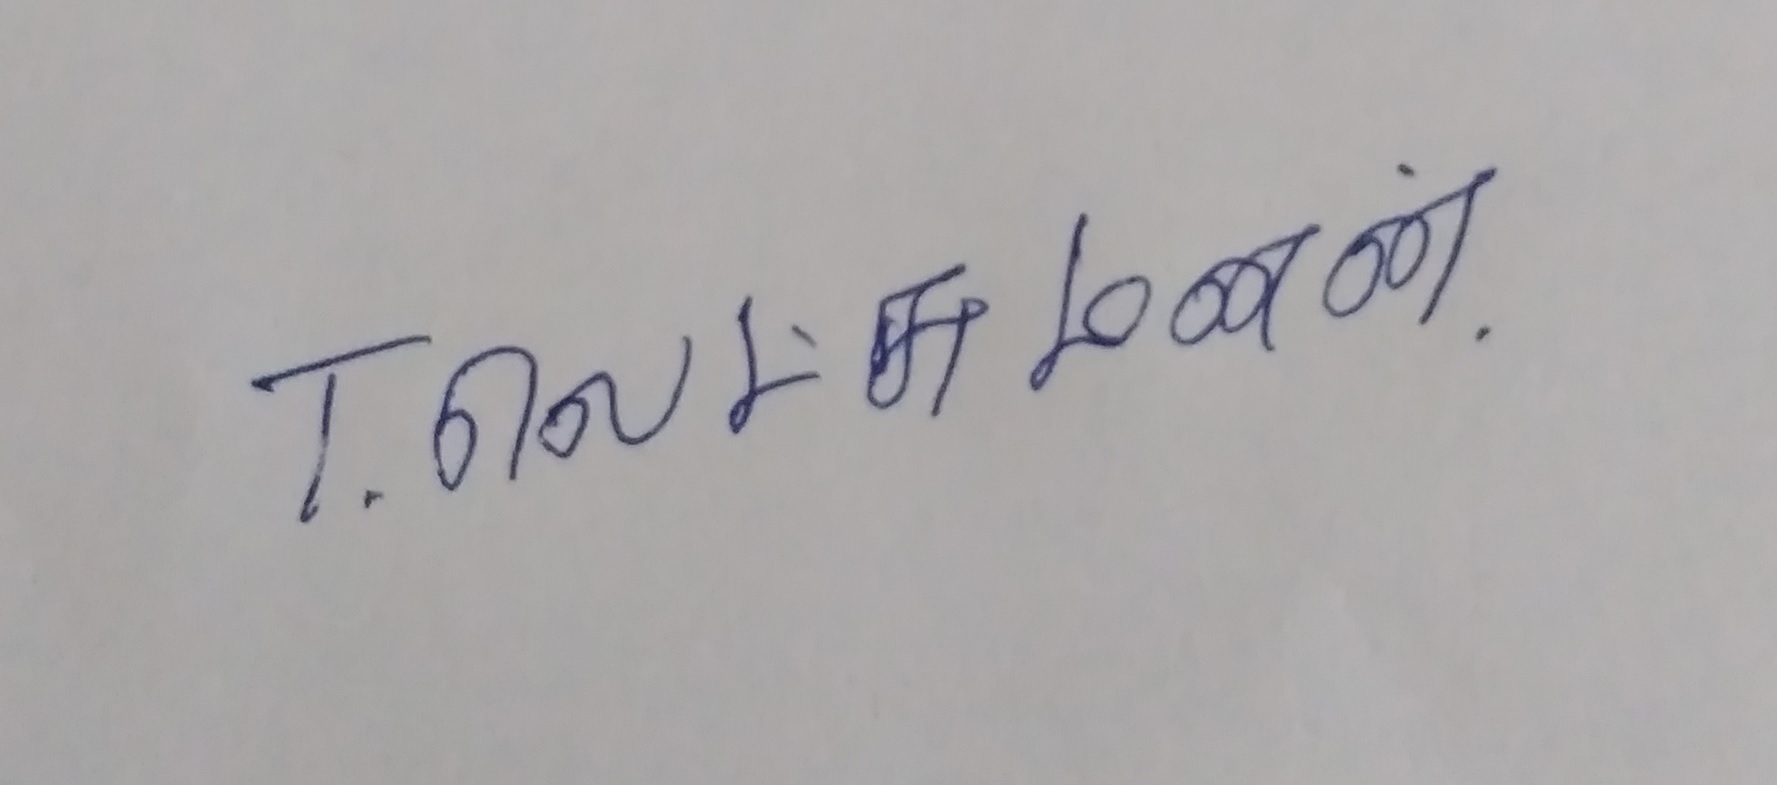 T. லெட்சுமணன்.